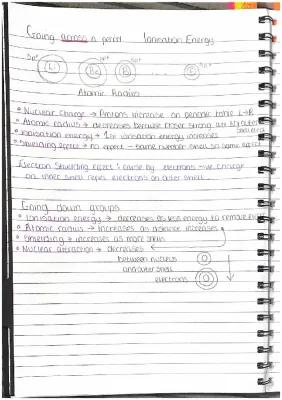 Going across a period Ionisation Energy
3p+ 4p+ 5p+ 9p+
Li Be B ...... F
Atomic Radius
Nuclear charge → Protons increase on periodic table L→R
Atomic radius → decreases because more strong att to outer electrons
ionisation energy → 1st ionisation energy increases
Shielding effect → no effect - same number shell so same effect
Electron Shielding effect: cause by electrons -ve charge
on inner shell repel electrons on outer shell
Going down groups
Ionisation energy → decreases as less energy to remove
Atomic radius → increases as distance increases
Shielding → increases as more shells
Nuclear attraction → decreases
between nucleus
and outer shell
electrons